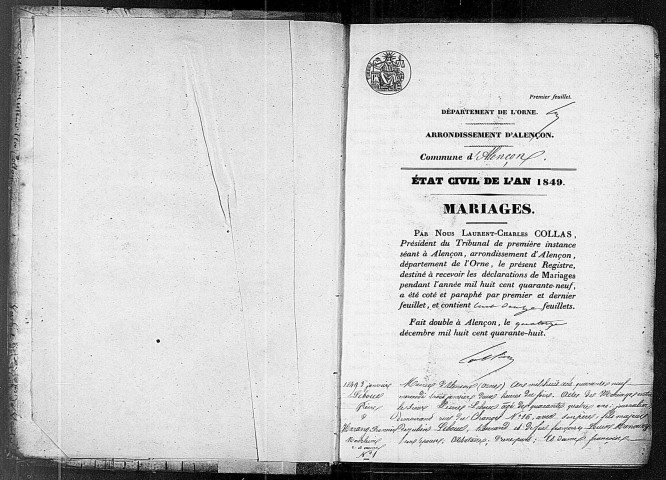 Premier feuillet.
DÉPARTEMENT DE L'ORNE.
ARRONDISSEMENT D'ALENÇON.
Commune d'Alençon.
ÉTAT CIVIL DE L'AN 1849.
MARIAGES.
PAR NOUS LAURENT-CHARLES COLLAS,
Président du Tribunal de première instance
séant à Alençon, arrondissement d'Alençon,
département de l'Orne, le présent Registre,
destiné à recevoir les déclarations de Mariages
pendant l'année mil huit cent quarante-neuf,
a été coté et paraphé par premier et dernier
feuillet, et contient feuillets.
Fait double à Alençon, le quatorze
décembre mil huit cent quarante-huit.
1849 3 janvier Mairie d'Alençon (Orne) mil huit cent quarante neuf
Leboux janvier deux heures du soir. Acte de Mariage entre
Pierre Pierre Leboux âgé de quarante quatre ans
& demeurant rue du Change N° 16,
Leboux, et de
N° 1